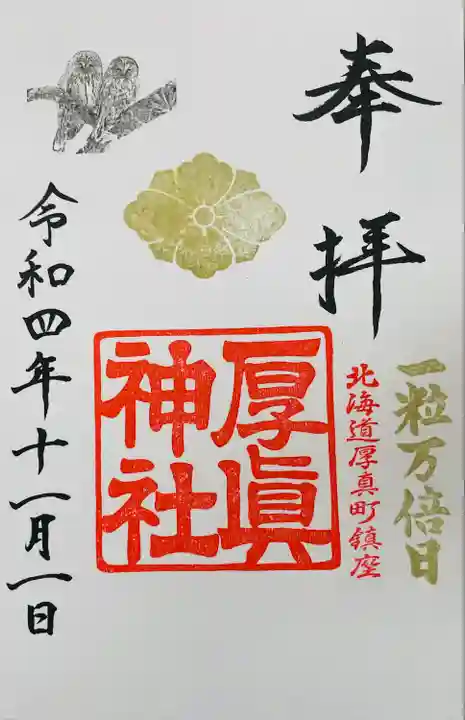 奉拝
一粒万倍日
北海道厚真町鎮座
厚眞
神社
令和四年十一月一日